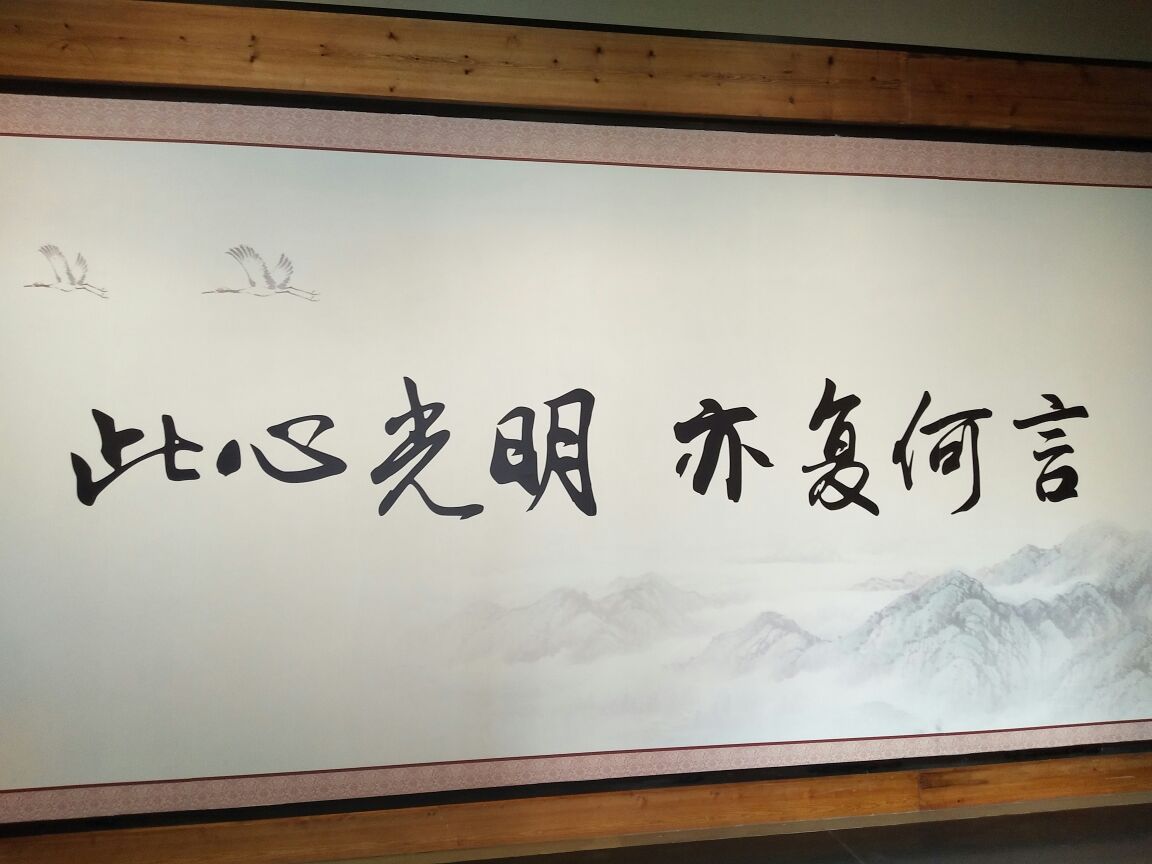 此心光明 亦复何言